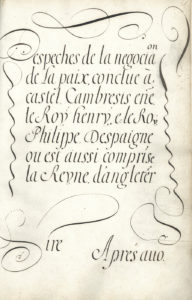 Despeches de la negocia^on
de la paix, conclue à
castel, Cambresis ẽtre
le Roy henry, e le Roy
Philippe Despaigne
ou est aussi comprise
la Reyne, d'angleter
Sire Apres auo